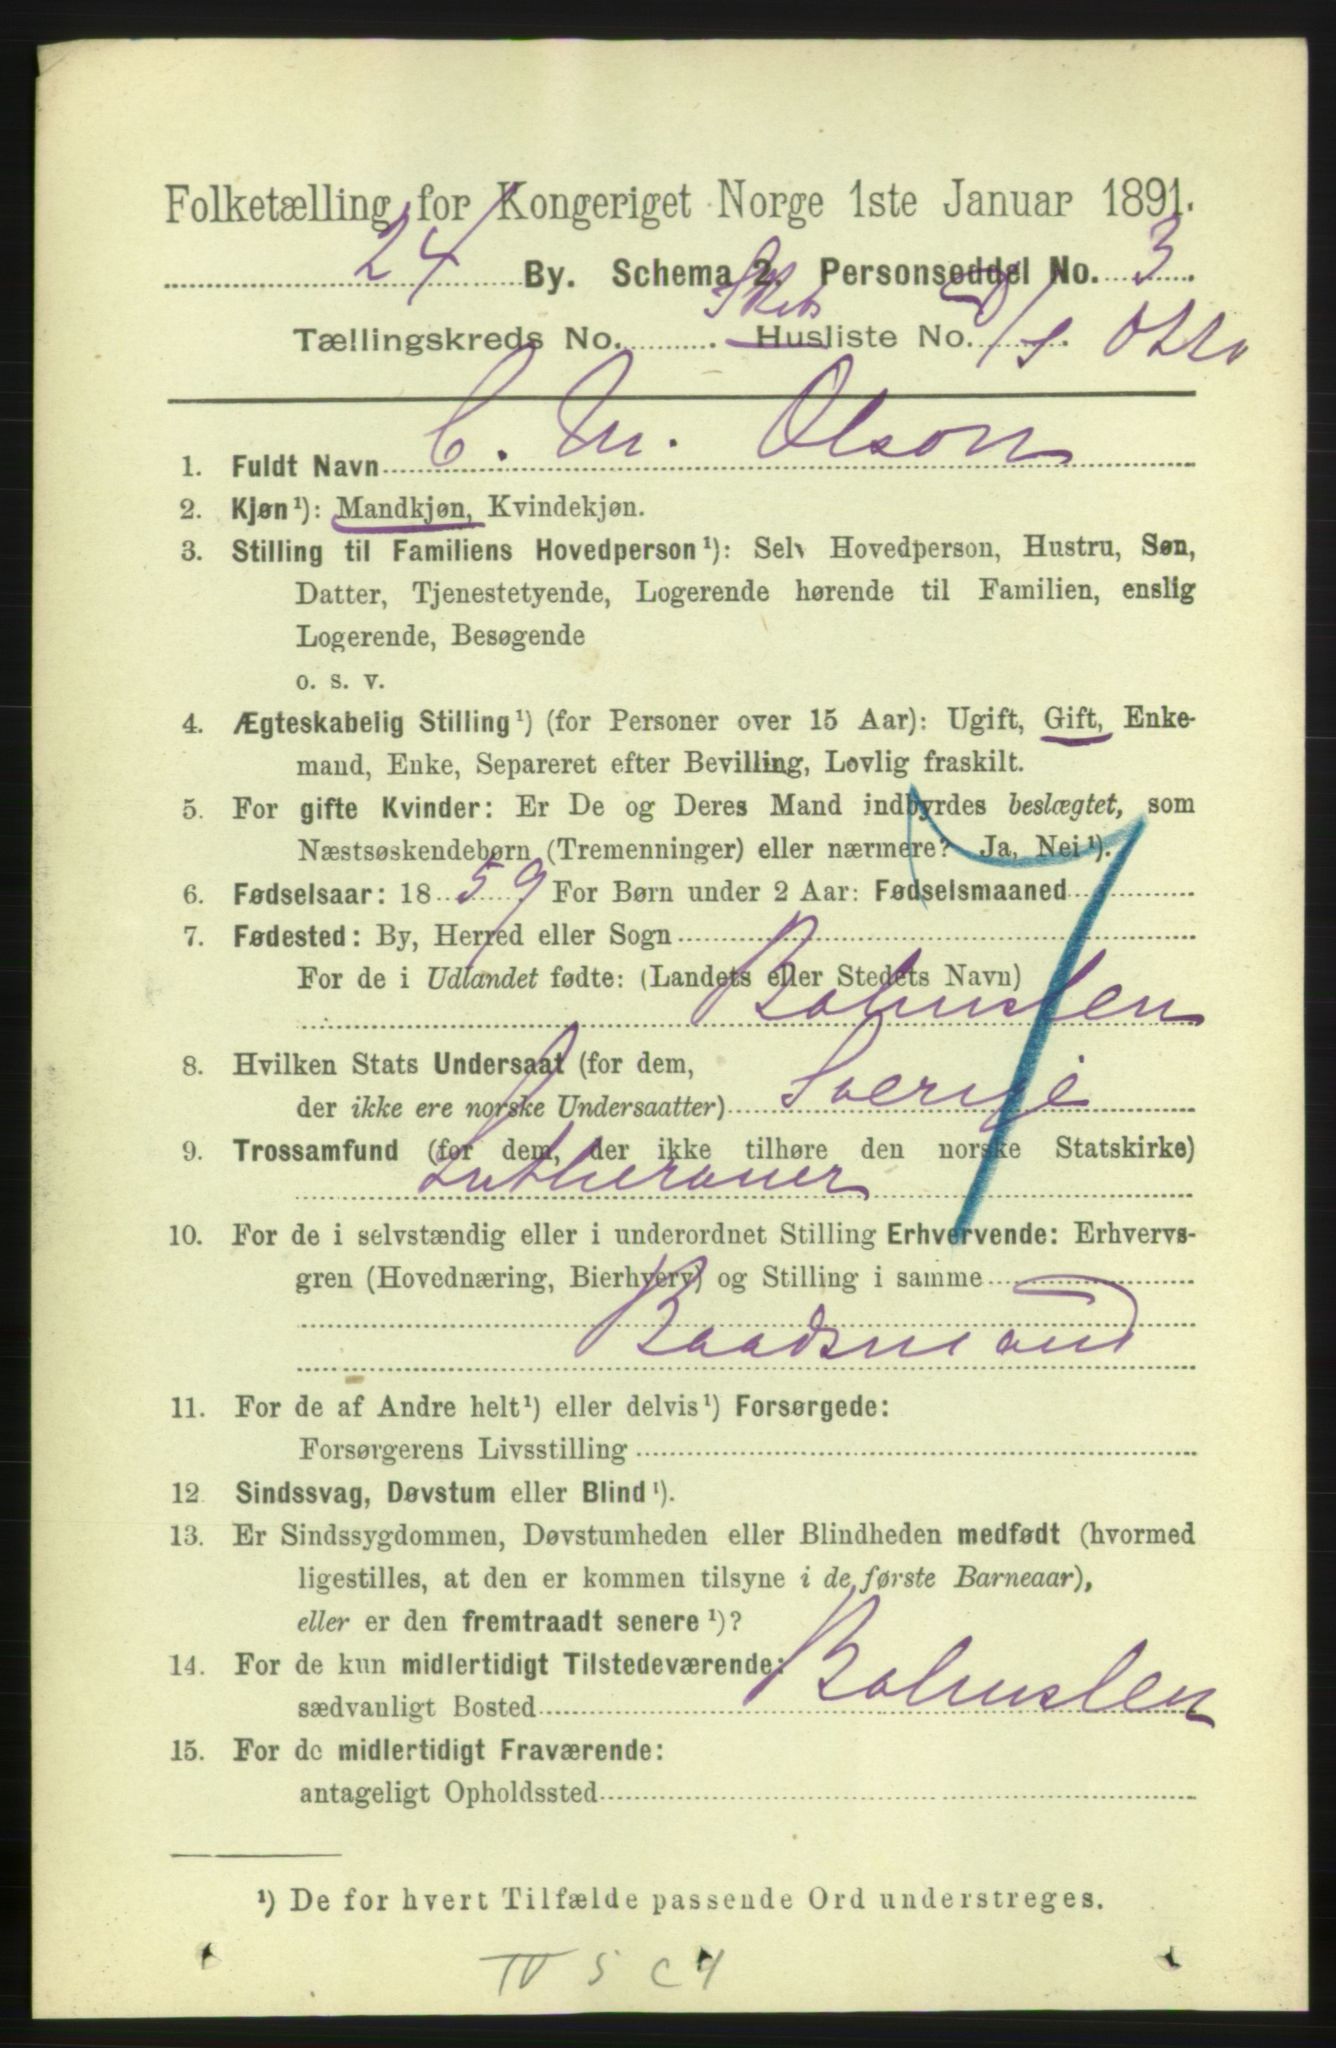 Folketælling for Kongeriget Norge 1ste Januar 1891.
24 By. Schema 2. Personseddel No. 3.
Skibs
Tællingskreds No. . Husliste No. . D/S Otto
1. Fuldt Navn C. M. Olson
2. Kjøn¹): Mandkjøn, Kvindekjøn.
3. Stilling til Familiens Hovedperson¹): Selv Hovedperson, Hustru, Søn,
Datter, Tjenestetyende, Logerende hørende til Familien, enslig
Logerende, Besøgende
o. s. v.
4. Ægteskabelig Stilling¹) (for Personer over 15 Aar): Ugift, Gift, Enke-
mand, Enke, Separeret efter Bevilling, Lovlig fraskilt.
5. For gifte Kvinder: Er De og Deres Mand indbyrdes beslægtet, som
Næstsøskendebørn (Tremenninger) eller nærmere? Ja, Nei¹).
6. Fødselsaar: 1859 For Børn under 2 Aar: Fødselsmaaned
7. Fødested: By, Herred eller Sogn
For de i Udlandet fødte: (Landets eller Stedets Navn)
Bohuslen
8. Hvilken Stats Undersaat (for dem,
der ikke ere norske Undersaatter) Sverige
9. Trossamfund (for dem, der ikke tilhøre den norske Statskirke)
Lutheraner
10. For de i selvstændig eller i underordnet Stilling Erhvervende: Erhvervs-
gren (Hovednæring, Bierhverv) og Stilling i samme
Baadsmand
11. For de af Andre helt¹) eller delvis¹) Forsørgede:
Forsørgerens Livsstilling
12 Sindssvag, Døvstum eller Blind¹).
13. Er Sindssygdommen, Døvstumheden eller Blindheden medfødt (hvormed
ligestilles, at den er kommen tilsyne i de første Barneaar),
eller er den fremtraadt senere¹)?
14. For de kun midlertidigt Tilstedeværende:
sædvanligt Bosted Bohuslen
15. For de midlertidigt Fraværende:
antageligt Opholdssted
¹) De for hvert Tilfælde passende Ord understreges.
IV 5 C4